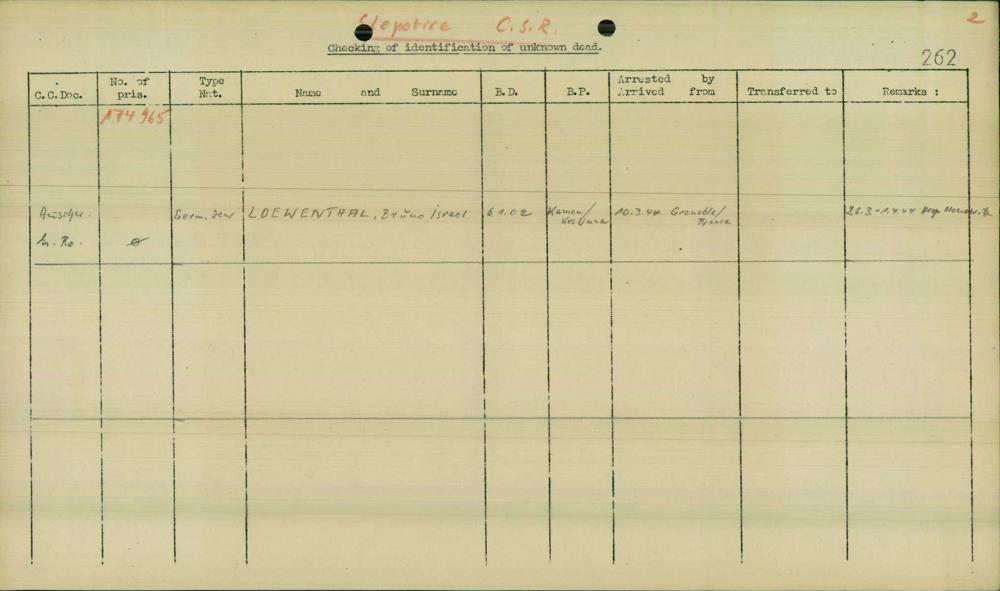 Slepotice C.S.R. 2
Checking of identification of unknown dead.
262
C.C.Doc. No. of pris. Type Nat. Name and Surname B.D. B.P. Arrested by Arrived from Transferred to Remarks :
174 965
Germ. Jew LOEWENTHAL, Bruno Israel 6.1.02 Kamen/ 10.3.44 Grenoble/ 26.3-1.4.44